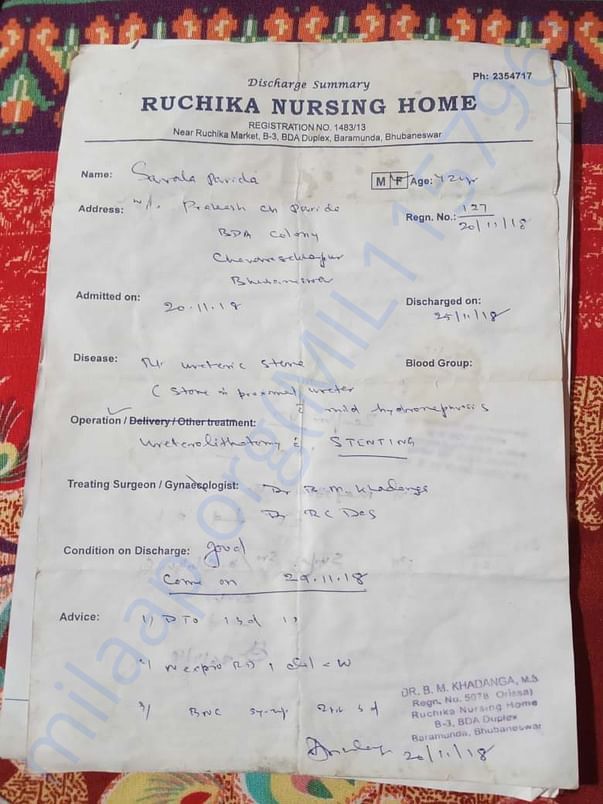 Ph: 2354717
Discharge Summary
RUCHIKA NURSING HOME
REGISTRATION NO. 1483/13
Near Ruchika Market, B-3, BDA Duplex, Baramunda, Bhubaneswar
Name: Sarala Parida M F Age: 42yr
Address: w/o Prakash ch Parida Regn. No.: 127
20/11/18
BDA Colony
Admitted on: 20.11.18 Discharged on:
25/11/18
Disease: Rt ureteric stone Blood Group:
( Stone in proximal ureter
c mild hydronephrosis
Operation / Delivery / Other treatment:
Ureterolithotomy c STENTING
Treating Surgeon / Gynaecologist: Dr B. M. Khadanga
Dr R C Das
Condition on Discharge: good
Come on 29.11.18
Advice: 1)
2)
3) syrup
DR. B. M. KHADANGA, M.S
Regn. No. 5078 Orissa)
Ruchika Nursing Home
B-3, BDA Duplex
Baramunda, Bhubaneswar
20/11/18
milaap.org(MIL115796